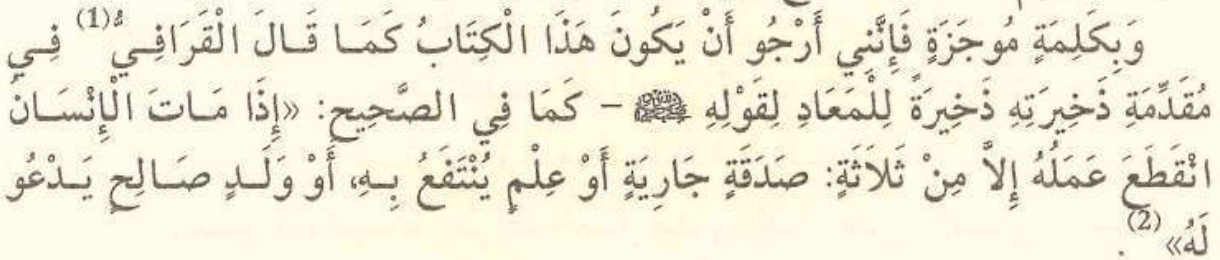 وَبِكَلِمَةٍ مُوجَزَةٍ فَإِنَّنِي أَرْجُو أَنْ يَكُونَ هَذَا الْكِتَابُ كَمَا قَالَ الْقَرَافِيُّ(1) فِي
مُقَدِّمَةِ ذَخِيرَتِهِ ذَخِيرَةً لِلْمَعَادِ لِقَوْلِهِ ﷺ – كَمَا فِي الصَّحِيحِ: «إِذَا مَاتَ الْإِنْسَانُ
انْقَطَعَ عَمَلُهُ إِلاَّ مِنْ ثَلاَثَةٍ: صَدَقَةٍ جَارِيَةٍ أَوْ عِلْمٍ يُنْتَفَعُ بِهِ، أَوْ وَلَدٍ صَالِحٍ يَدْعُو
لَهُ»(2).